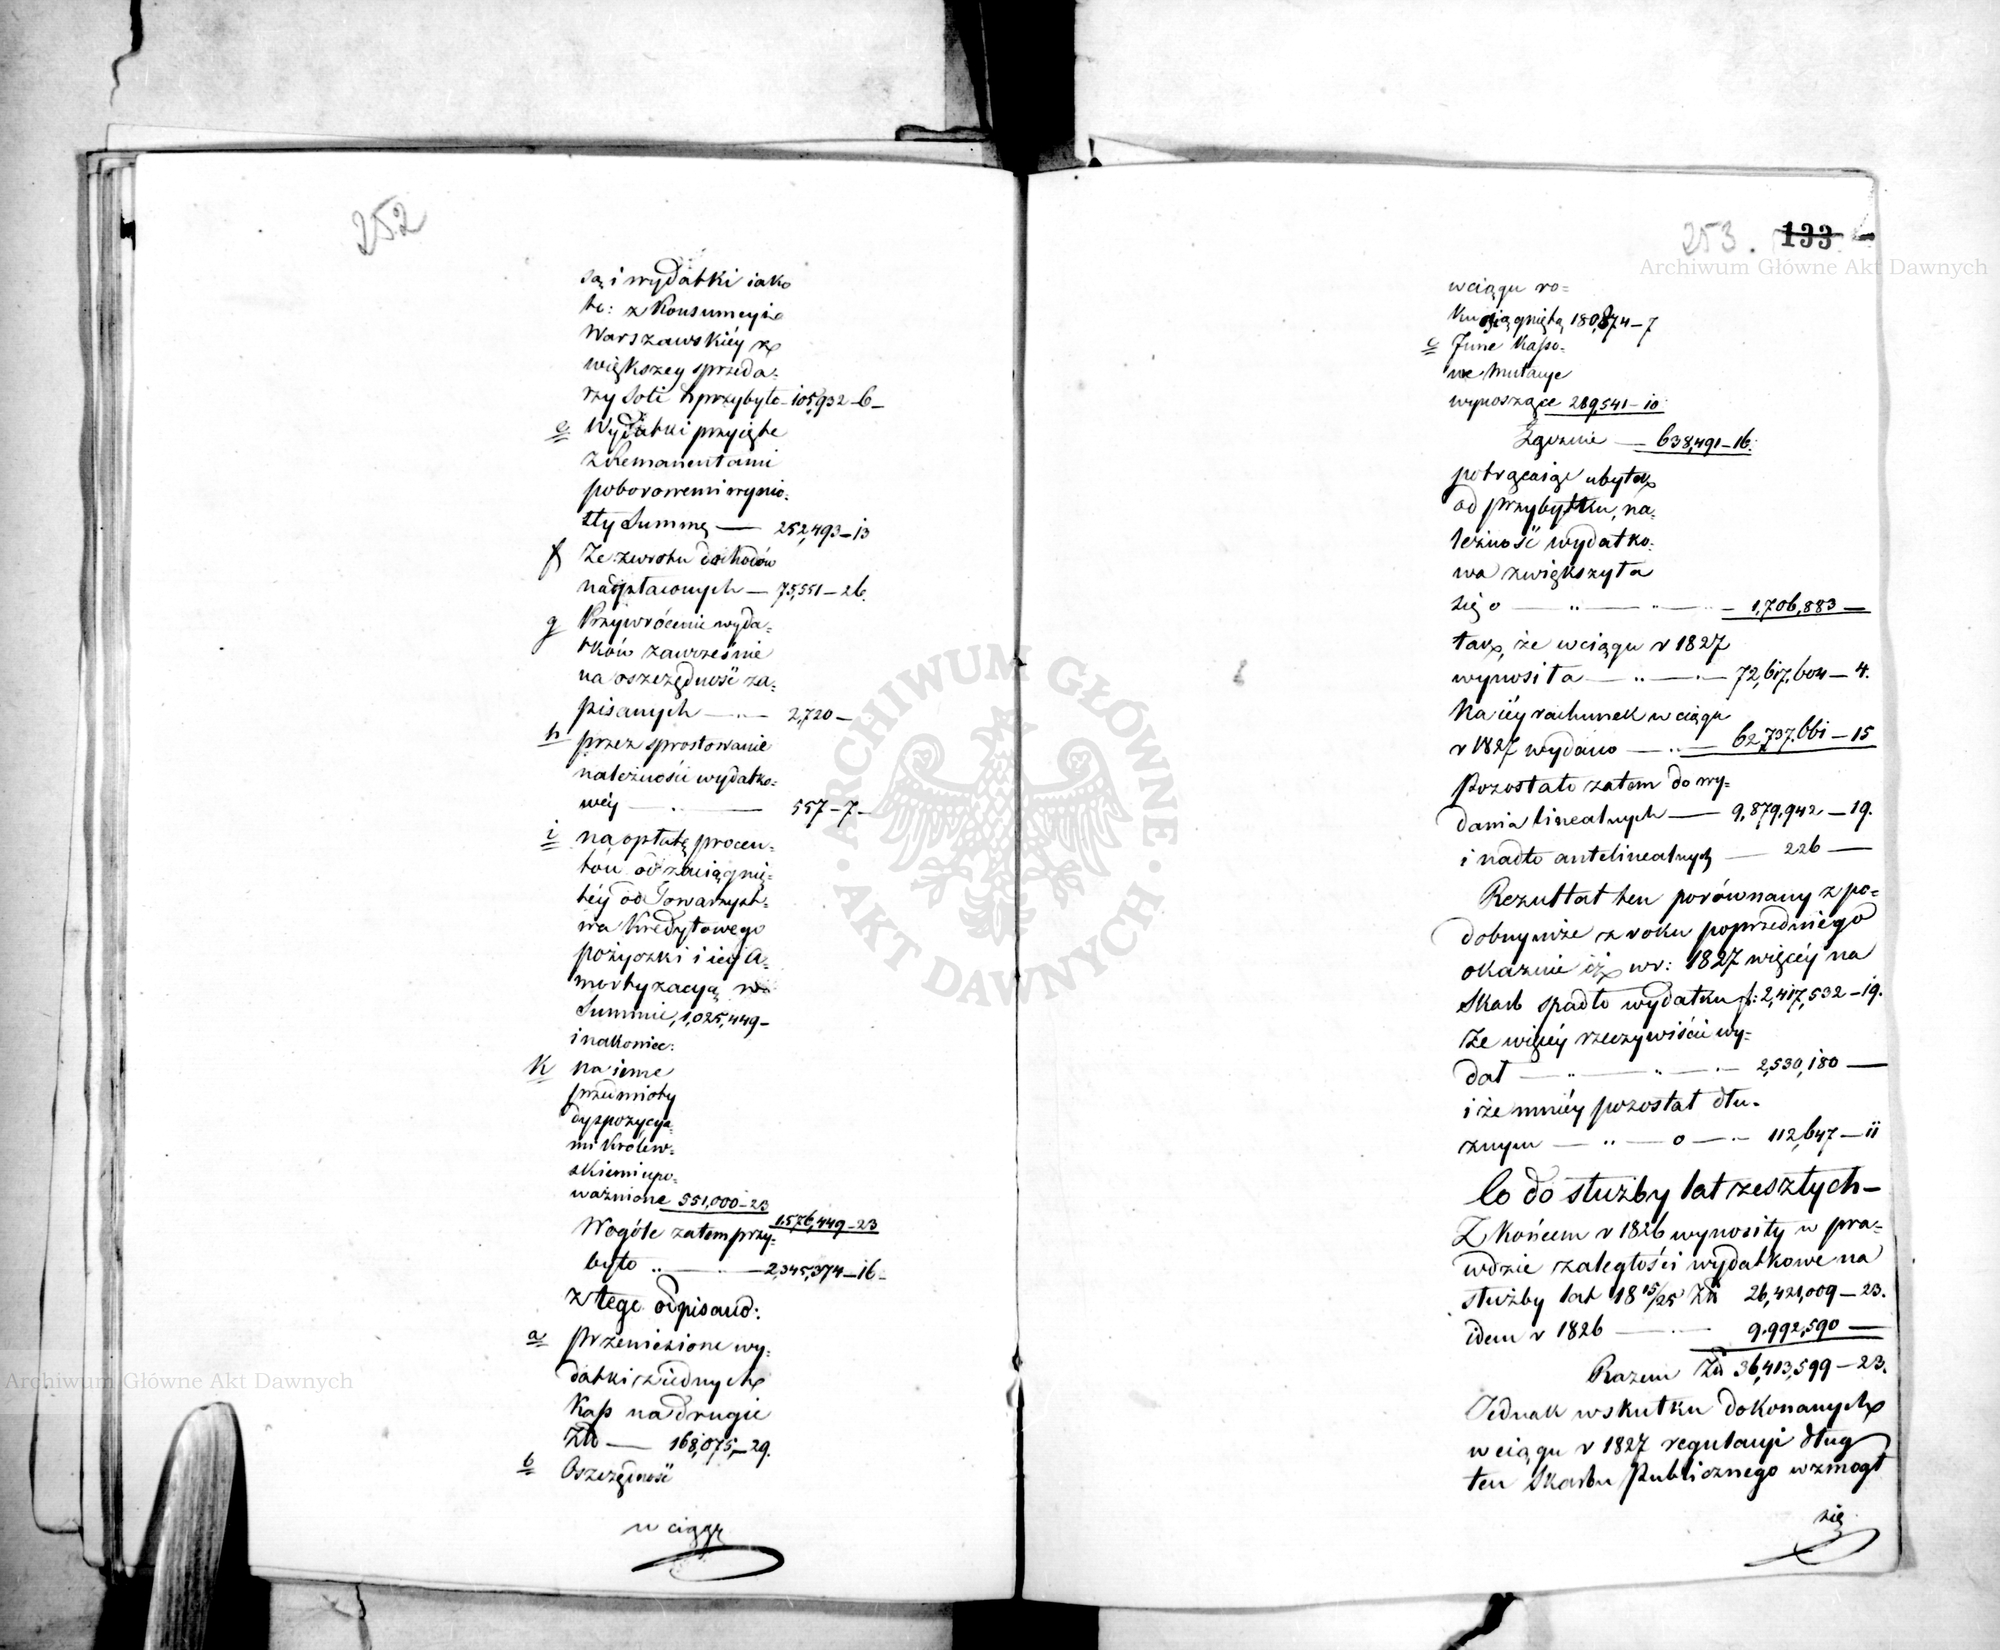 252
są i wydatki iako
to: z Konsumcyi
Warszawskiéy z
większey sprzeda-
rzy Soli przybyło – 105,932 – 6 –
e Wydatki przyięte
z Remanentami
poborowemi wynio-
sły Summę — 252,493 – 13
f Ze zwrotu dochodów
nadpłaconych — 75,551 – 26.
g Przywrócenie wyda-
tków zawcześnie
na oszczędność za-
pisanych — „ — 2,720 –
h przez sprostowanie
należności wydatko-
wéy — „ — 557 – 7 –
i na opłatę procen-
tów od zaciągnię-
téy od Towarzyst-
wa Kredytowego
pożyczki i iéy A-
mortyzacyą w
Summie, 1,025,449 –
i nakoniec:
k na inne
przedmioty
dyspozycya-
mi Królew-
skiemi upo-
ważnione 551,000 – 23
1,576,449 – 23
Wogóle zatem przy-
było „ — „ — 2,345,374 – 16 –
z tego odpisano:
a przeniesione wy-
datki z iednych
Kass na drugie
Zł — 168,075 – 29.
b Oszczędność
w ciągu
253. 133
w ciągu ro-
ku osiągnięta 180,874 – 7
c Inne kasso-
we mutacye
wynoszące 289,541 – 10
Łącznie — 638,491 – 16.
potrącaiąc ubytek
od przybytku, na-
leżność wydatko-
wa zwiększyła
się o — „ — „ — 1,706,883 —
tak, że w ciągu r 1827
wynosiła — „ — „ — 72,617,604 – 4.
Na iéy rachunek w ciągu
r 1827 wydano — „ — 62,737,661 – 15
Pozostało zatem do wy-
dania linealnych — 9,879,942 – 19.
i nadto antelinealnych — 226 —
Rezultat ten porównany z po-
dobnymże z roku poprzedniego
okaznie iż w r: 1827 więcéy na
Skarb spadło wydatku f: 2,417,532 – 19.
że więcéy rzeczywiście wy-
dał — „ — „ — „ — 2,530,180 —
i że mniéy pozostał dłu-
żnym — „ — o — „ — 112,647 – 11
Co do służby lat zeszłych –
Z końcem r 1826 wynosiły w pra-
wdzie zaległości wydatkowe na
służby lat 18 15/25 Zł 26,421,009 – 23.
idem r 1826 — „ — 9,992,590 —
Razem Zł 36,413,599 – 23.
Jednak w skutku dokonanych
w ciągu r 1827 regulacyi dług
ten Skarbu Publicznego wzmógł
się
Archiwum Główne Akt Dawnych
ARCHIWUM GŁÓWNE · AKT DAWNYCH ·
Archiwum Główne Akt Dawnych